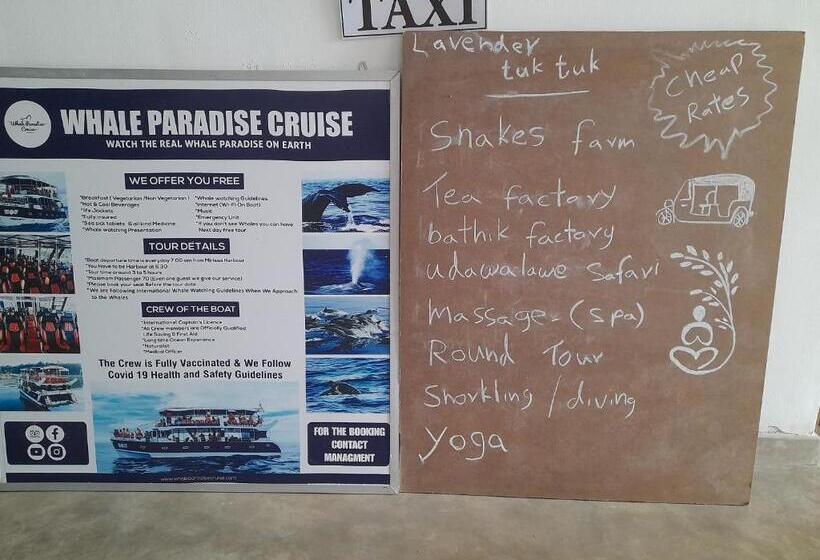 TAXI
Whale Paradise
Cruise
WHALE PARADISE CRUISE
WATCH THE REAL WHALE PARADISE ON EARTH
WE OFFER YOU FREE
*Breakfast ( Vegetarian /Non Vegetarian )
*Hot & Cool Beverages
*life Jackets
*Fully insured
*Sea sick tablets & all and Medicine
*Whale watching Presentation
*Whale watching Guidelines
*Internet (Wi-Fi On Boat)
*Music
*Emergency Unit
*If you don't see Whales you can have
Next day free tour
TOUR DETAILS
*Boat departure time is everyday 7.00 am from Mirissa Harbour
*You Have to be Harbour at 6.30
*Tour time around 3 to 5 hours
*Maximam Passenger 70 (Even one guest we give our service)
*Please book your seat Before the tour date
*We are Following International Whale Watching Guidelines When We Approach
to the Whales
CREW OF THE BOAT
*International Captain's Licence
*All Crew members are Officially Qualified
Life Saving & First Aid
*Long time Ocean Experience
*Naturalist
*Medical Officer
The Crew is Fully Vaccinated & We Follow
Covid 19 Health and Safety Guidelines
FOR THE BOOKING
CONTACT
MANAGMENT
Lavender
tuk tuk
Cheap
Rates
Snakes farm
Tea factory
bathik factory
udawalawe Safari
Massage (spa)
Round Tour
Shorkling / diving
Yoga